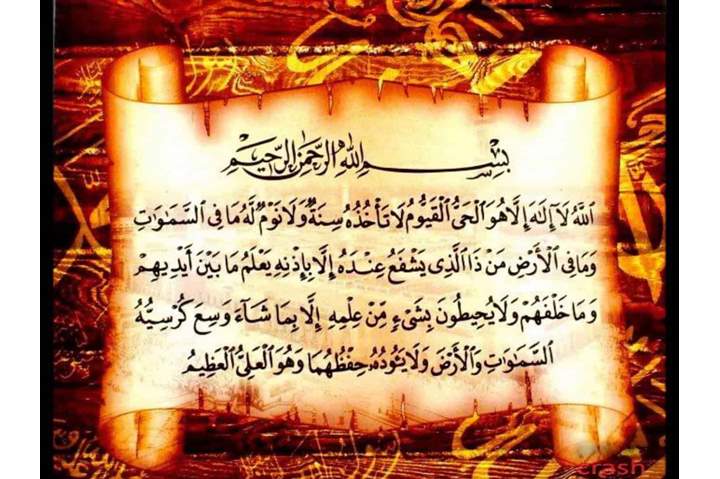 بِسْمِ اللهِ الرَّحْمَٰنِ الرَّحِيمِ
اللَّهُ لَا إِلَٰهَ إِلَّا هُوَ الْحَيُّ الْقَيُّومُ لَا تَأْخُذُهُ سِنَةٌ وَلَا نَوْمٌ لَّهُ مَا فِي السَّمَٰوَٰتِ
وَمَا فِي الْأَرْضِ مَن ذَا الَّذِي يَشْفَعُ عِندَهُ إِلَّا بِإِذْنِهِ يَعْلَمُ مَا بَيْنَ أَيْدِيهِمْ
وَمَا خَلْفَهُمْ وَلَا يُحِيطُونَ بِشَيْءٍ مِّنْ عِلْمِهِ إِلَّا بِمَا شَاءَ وَسِعَ كُرْسِيُّهُ
السَّمَٰوَٰتِ وَالْأَرْضَ وَلَا يَئُودُهُ حِفْظُهُمَا وَهُوَ الْعَلِيُّ الْعَظِيمُ
crash